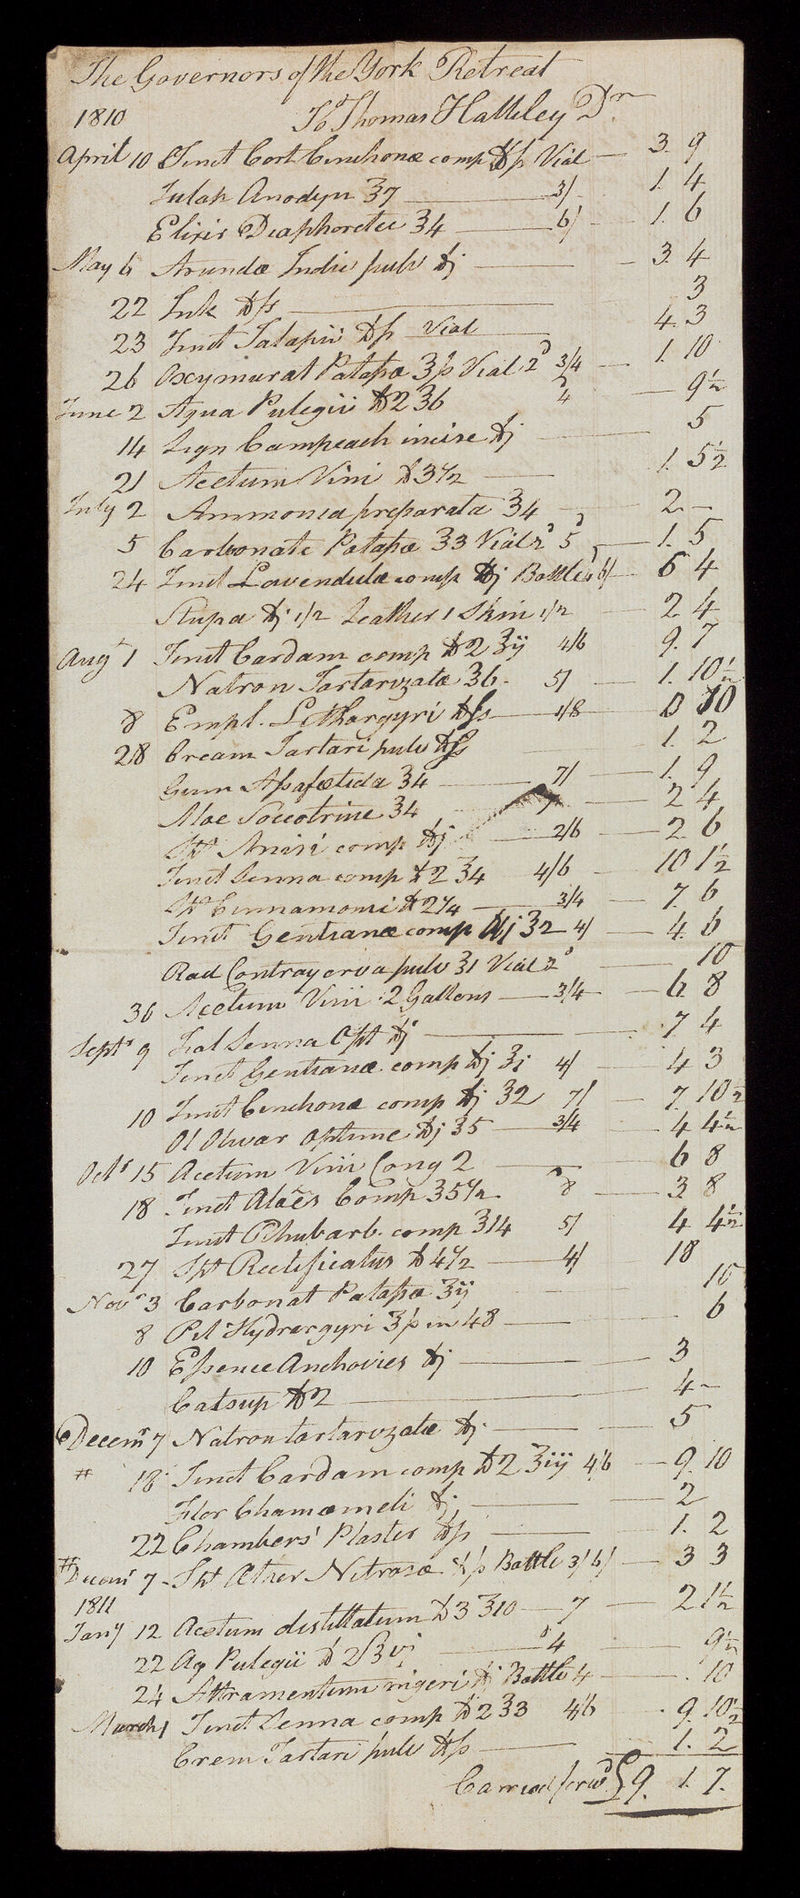 The Governors of the York Retreat
1810 To Thomas Hatteley Dr
April 10 Tinct Cort Cinchonæ comp ℔ß Vial — 3. 9
Julap Anodyn ℥7 — 3/ 1. 4
Elixir Diaphoretic ℥4 — 6/ 1. 6
May 6 Arundæ Indic pulv ℔j — 3. 4
22 Ink ℔ß — 3
23 Tinct Jalapii ℔ß Vial — 4. 3
26 Oxymuriat Potassæ ʒß Vial 2d 3/4 — 1. 10
June 2 Aqua Pulegii ℔2 ℥6 4 — 9½
14 Lign Campeach incise ℔j — 5
21 Acetum Vini ℔3½ — 1. 5½
July 2 Ammonia preparata ℥4 — 2. -
5 Carbonate Potassæ ℥3 Vial 2d 5d — 1. 5
24 Tinct Lavendulæ comp ℔j Bottle 4 6/ — 6 4
Stupa ℔j 1/2 Leather 1 Skin 1/2 — 2 4
Augt 1 Tinct Cardam comp ℔2 ℥ij 4/6 9. 7
Natron Tartarizatæ ℥6 - 5/ — 1. 10½
8 Empl. Lithargyri ℔ß — 1/8 — 0 10
28 Cream Tartari pulv ℔ß 1. 2
Gum Assafœtida ℥4 — 7/ — 1. 9
Aloe Soccotrine ℥4 — 2 4
Spt Anisi comp ℔j 2/6 — 2 6
Tinct Senna comp ℔2 ℥4 4/6 — 10 1½
Spt Cinnamomi ℔2¼ — 3/4 — 7 6
Tinct Gentianæ comp ℔j ℥2 4/ — 4. 6
Rad Contrayerva pulv ℥1 Vial 2d — 10
30 Acetum Vini 2 Gallons — 3/4 — 6. 8
Septr 9 Fol Senna Opt ℔j — 7 4
Tinct Gentianæ comp ℔j ℥j 4/ — 4 3
10 Tinct Cinchonæ comp ℔j ℥2 7/ — 7. 10½
Ol Olivar Optime ℔j ℥5 — 3/4 — 4 4½
Octr 15 Acetum Vini Cong 2 — 6 8
18 Tinct Aloës Comp ℥5½ 8d — 3. 8
Tinct Rhubarb. comp ℥14 5/ 4 4½
27 Spt Rectificatus ℔4½ — 4/ 18
Novr 3 Carbonat Potassæ ℥ij 10
8 Pil Hydrargyri ʒß in 48 — 6
10 Essence Anchovies ℔j — 3
Catsup ℔2 — 4 -
Decemr 7 Natron tartarizatæ ℔j — 5
# 18 Tinct Cardam comp ℔2 ℥iij 4/6 — 9. 10
Flor Chamœmeli ℔j — 2
22 Chambers' Plaster ℔ß — 1. 2
# Decemr 7 - Spt Æther Nitrosæ ℔ß Bottle 3/ 6/ — 3 3
1811
Jany 12 Acetum distillatum ℔3 ℥10 — 7 — 2 1½
22 Aq Pulegii ℔2 ℥vj — 4d 9½
24 Attramentum nigeri ℔j Bottle 4 — 10
March 1 Tinct Senna comp ℔2 ℥3 4/6 9. 10½
Crem Tartari pulv ℔ß — 1. 2
Carried forwd £9. 1. 7.